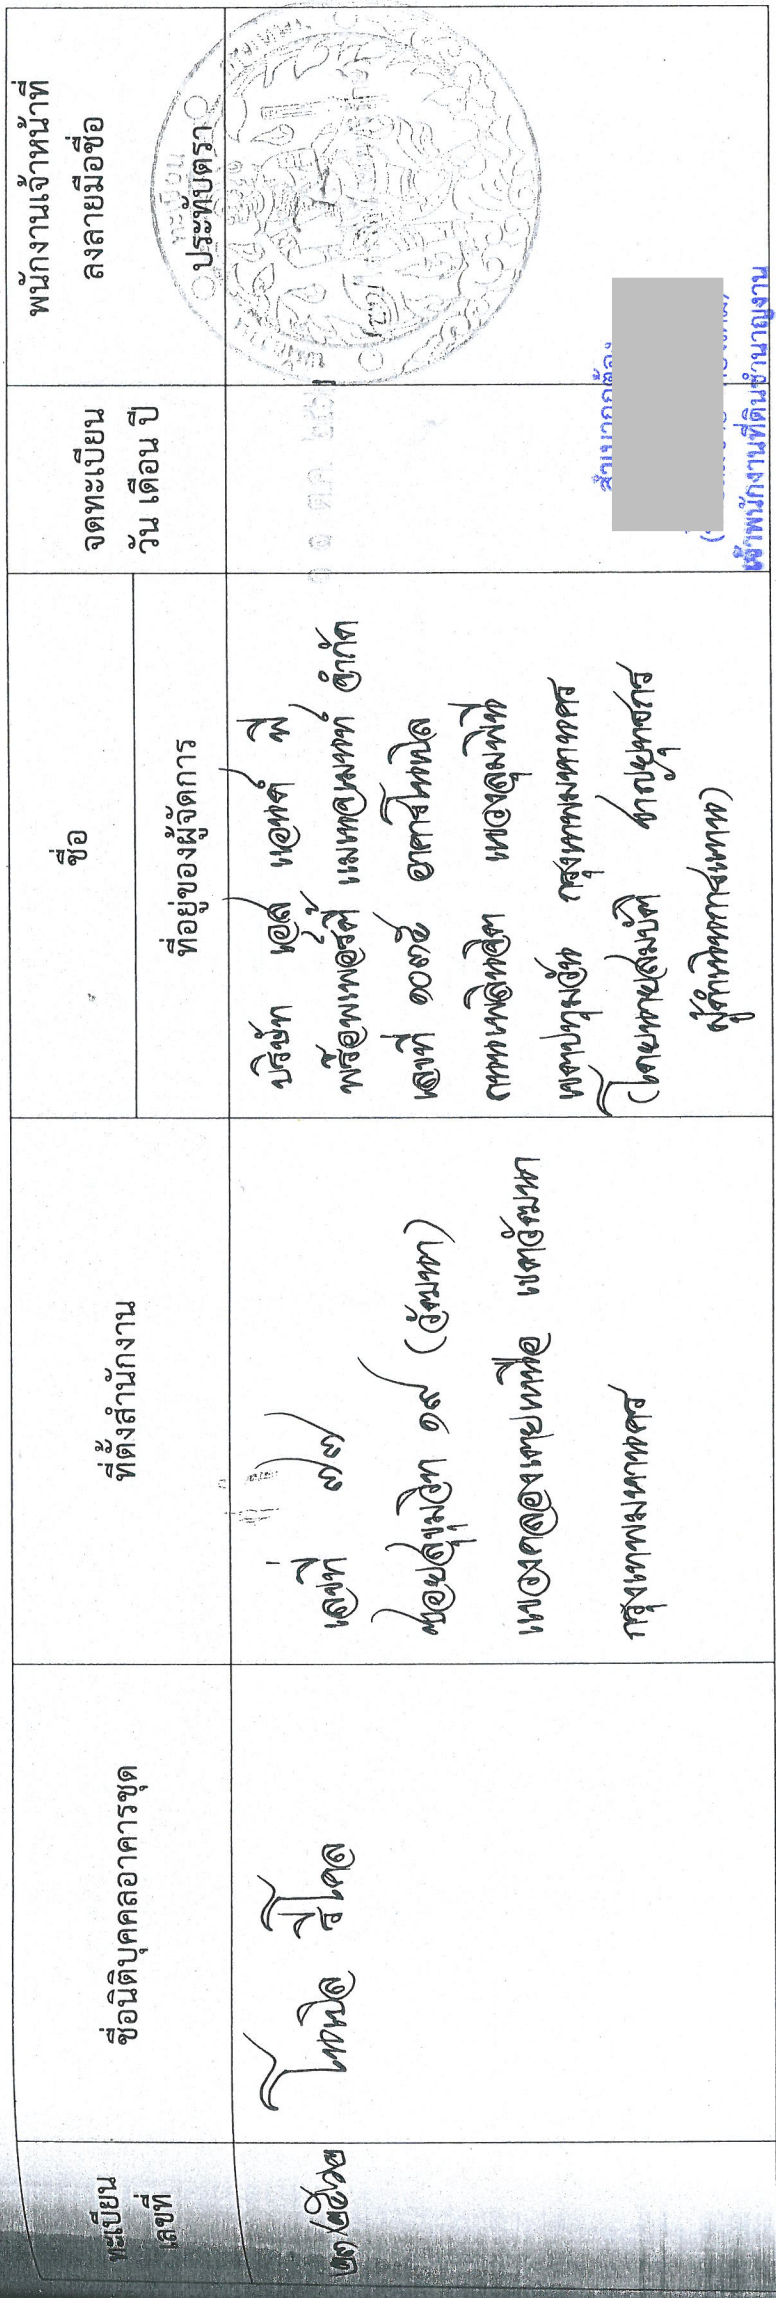 ทะเบียน
เลขที่
ชื่อนิติบุคคลอาคารชุด
ที่ตั้งสำนักงาน
ชื่อ
ที่อยู่ของผู้จัดการ
จดทะเบียน
วัน เดือน ปี
พนักงานเจ้าหน้าที่
ลงลายมือชื่อ
ประทับตรา
๒๓/๒๕๖๒
โนเบิล รีโคล
เลขที่ ๗๗
ซอยสุขุมวิท ๑๙ (วัฒนา)
แขวงคลองเตยเหนือ เขตวัฒนา
กรุงเทพมหานคร
บริษัท เอส แอนด์ พี
พร็อพเพอร์ตี้ แมเนจเมนท์ จำกัด
เลขที่ ๑๐๓๕ อาคารโนเบิล
ถนนเพลินจิต แขวงลุมพินี
เขตปทุมวัน กรุงเทพมหานคร
(โดยนายสมบัติ
ผู้ดำเนินการแทน)
ต.ค.
สำเนาถูกต้อง
เจ้าพนักงานที่ดินชำนาญงาน